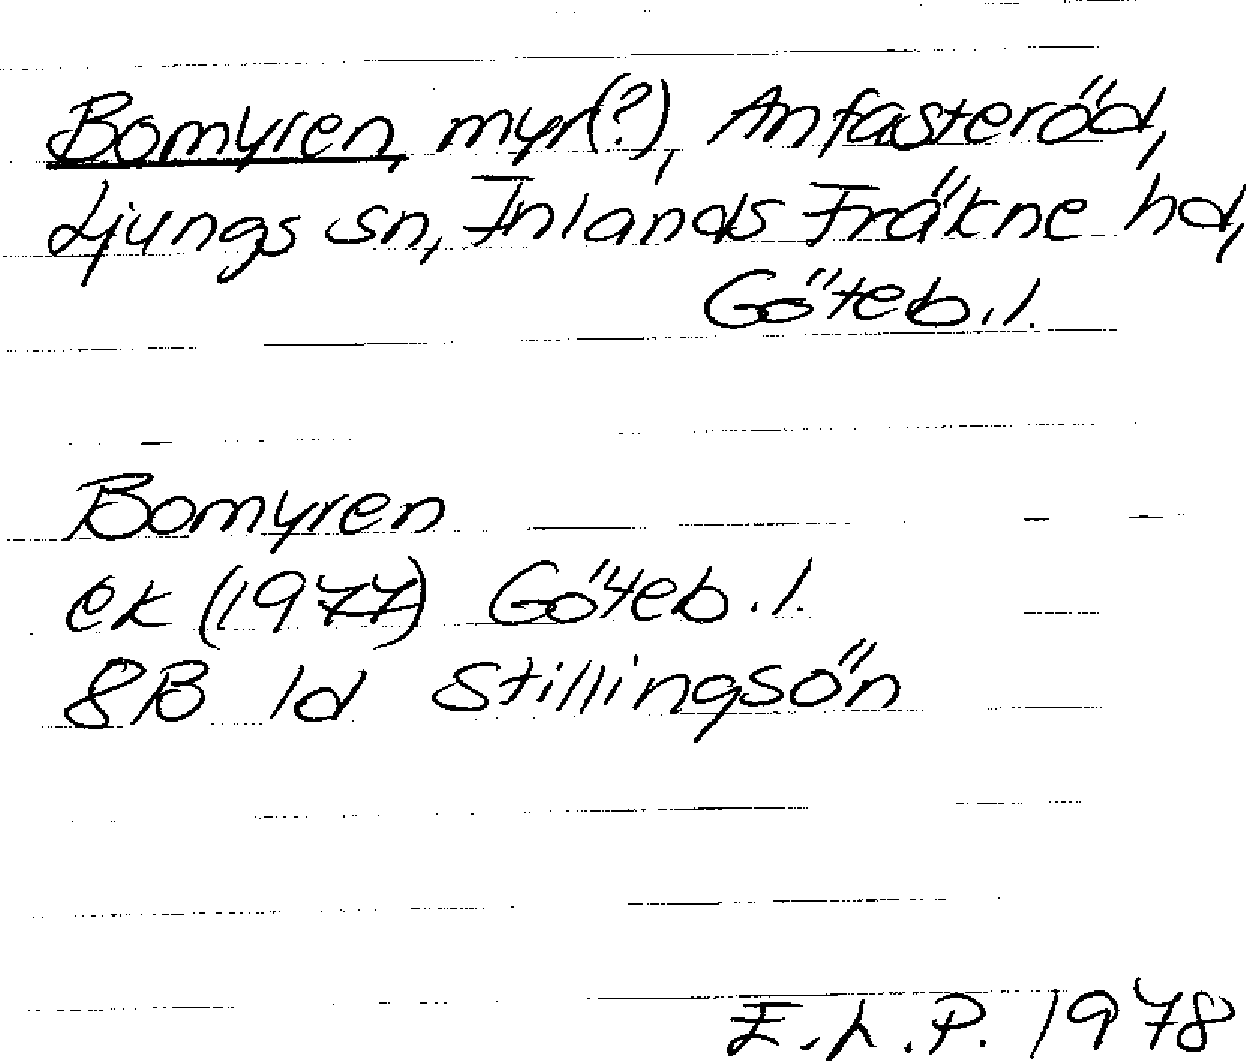 Bomyren, myr(?), Anfasteröd,
Ljungs sn, Inlands Fräkne hd,
Göteb. l.
Bomyren
ek (1977) Göteb. l.
8B 1d Stillingsön
E. L. P. 1978